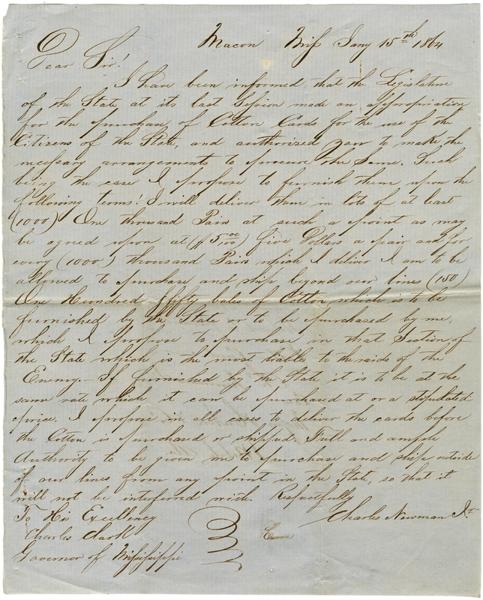 Macon Miss Jany 15th 1864
Dear Sir!
I have been informed that the Legislature
of the State at its last Session made an appropriation
for the purchase of Cotton Cards for the use of the
Citizens of the State, and authorized you to make the
necessary arrangements to procure the same. Such
being the case I propose to furnish them upon the
following terms! I will deliver them in lots of at least
(1000) One thousand Pairs at such a point as may
be agreed upon at ($5 00/100) Five Dollars a pair and for
every (1000) thousand Pairs which I deliver I am to be
allowed to purchase and ship beyond our lines (150)
One Hundred fifty bales of Cotton which is to be
furnished by the State or to be purchased by me,
which I propose to purchase in that Section of
the State which is the most liable to the raids of the
Enemy. If furnished by the State it is to be at the
same rate which it can be purchased at or a stipulated
price. I propose in all cases to deliver the cards before
the Cotton is purchased or shipped. Full and ample
Authority to be given me to purchase and ship outside
of our lines from any point in the State, so that it
will not be interfered with Respectfully
To His Excellency
Charles Newman
Charles Clark
Governor of Mississippi